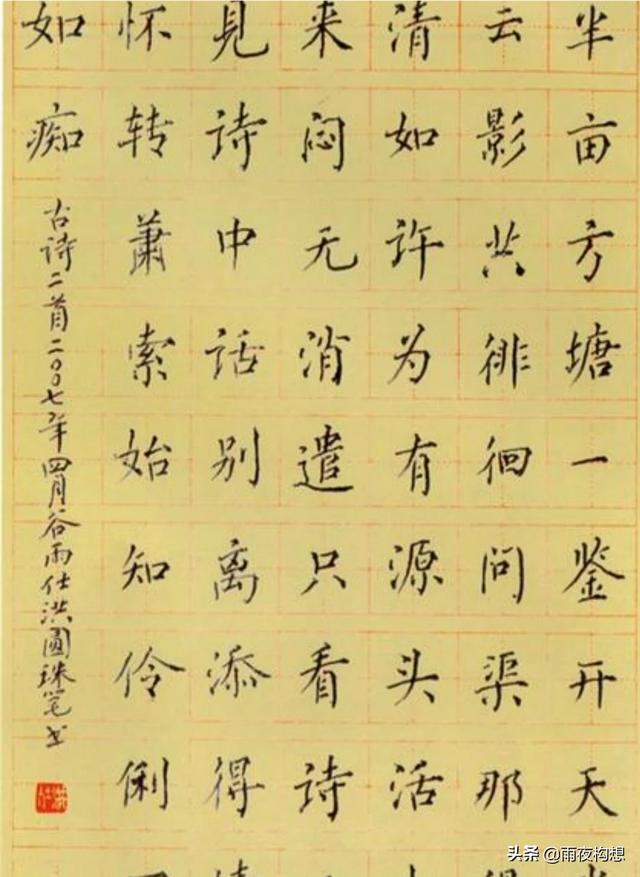 半亩方塘一鉴开天
云影共徘徊问渠那
清如许为有源头活
来闷无消遣只看诗
见诗中话别离添得
怀转萧索始知伶俐
如痴
古诗二首二〇〇七年四月谷雨仕洪圆珠笔书
头条 @雨夜构想